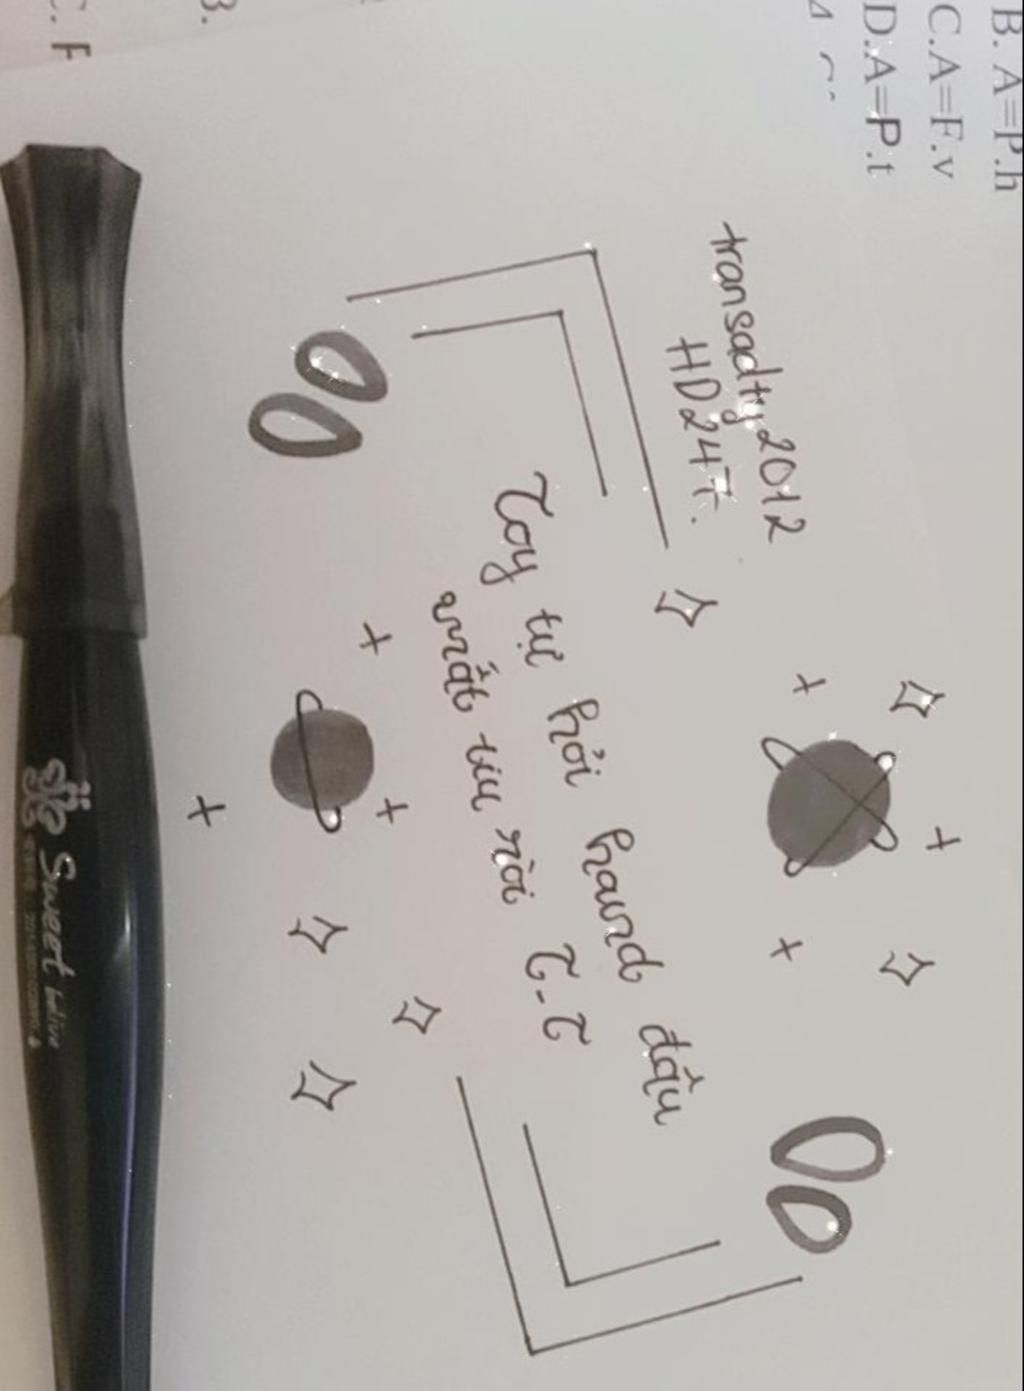 B. A=P.h
C.A=F.v
D.A=P.t
transadty2012
HD247.
Toy tự hỏi haund đậu
mất tiu rồi T-T
Sweet
3.
C. F